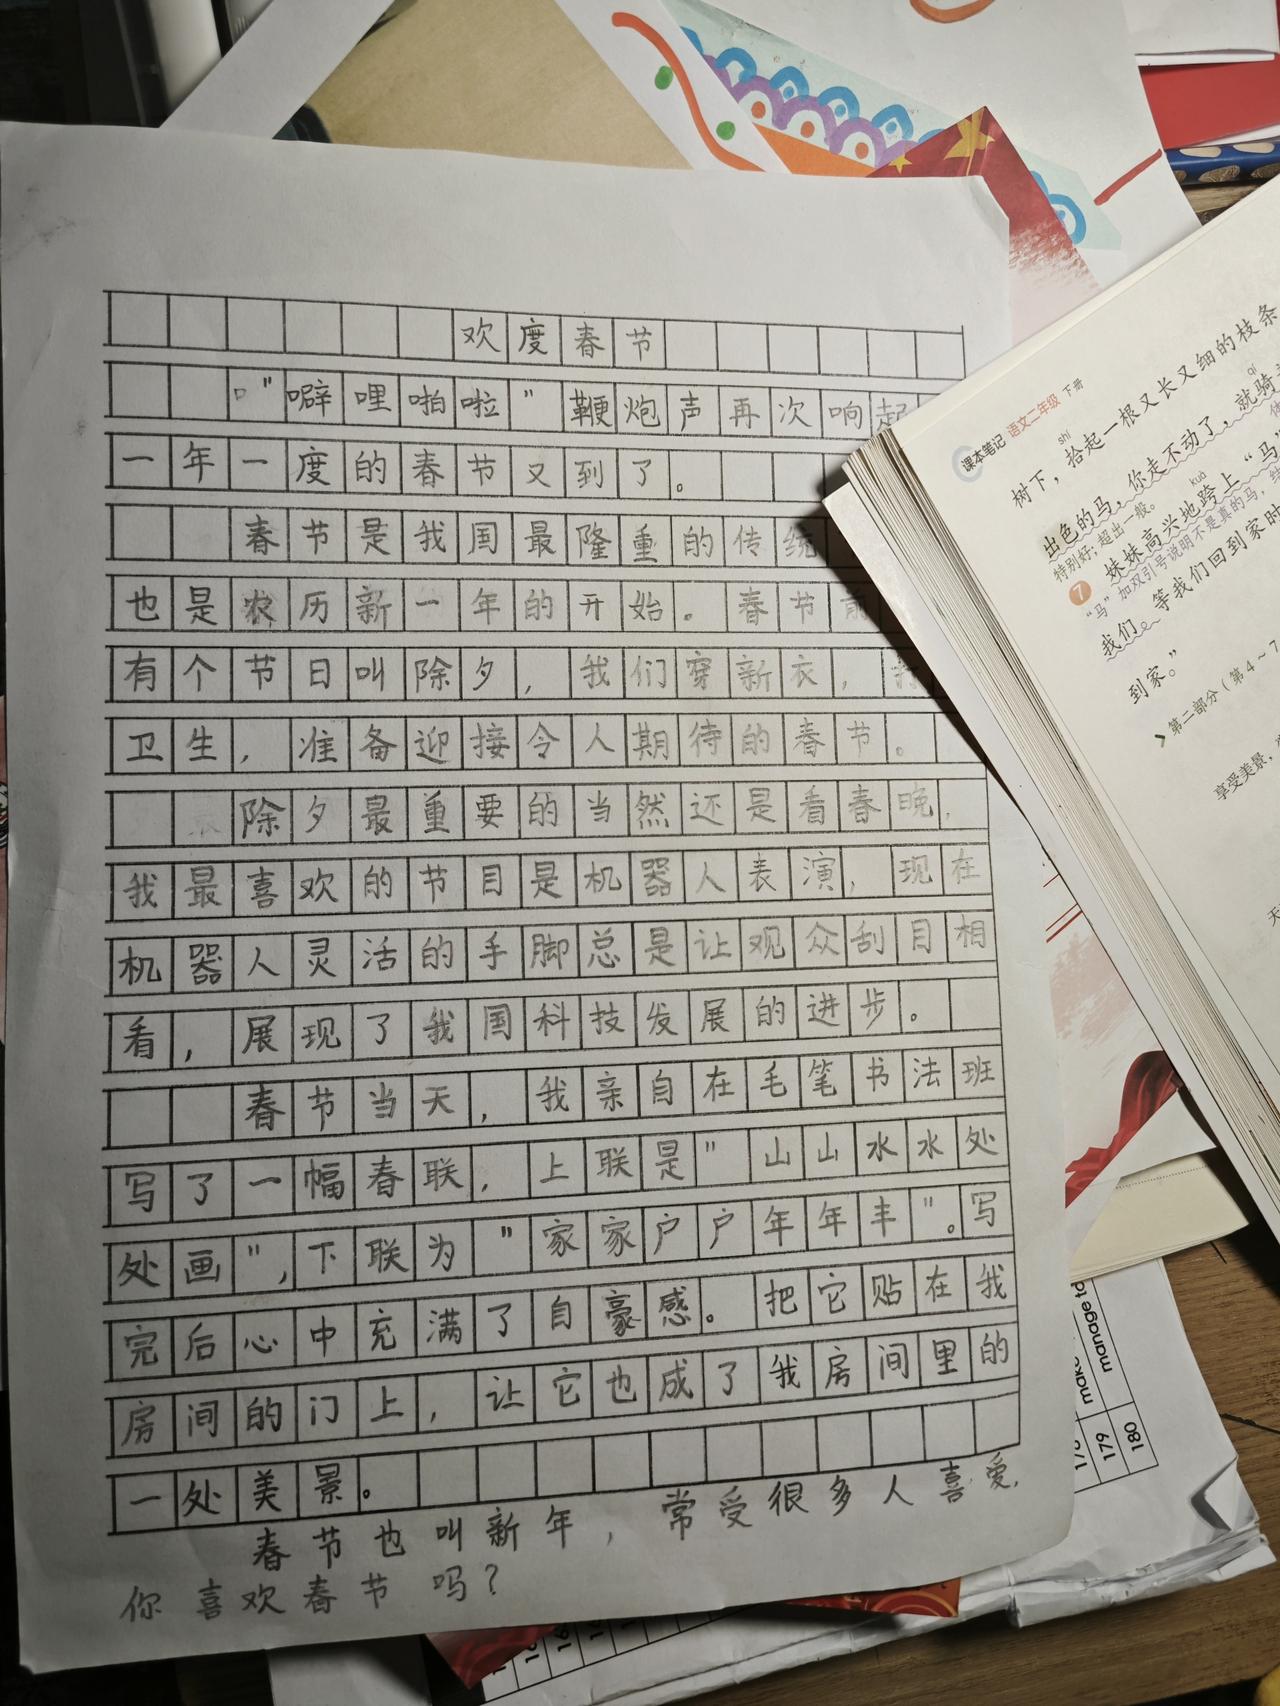 欢度春节
"噼哩啪啦"鞭炮声再次响起
一年一度的春节又到了。
春节是我国最隆重的传统
也是农历新一年的开始。春节前
有个节日叫除夕，我们穿新衣，打
卫生，准备迎接令人期待的春节。
除夕最重要的当然还是看春晚，
我最喜欢的节目是机器人表演，现在
机器人灵活的手脚总是让观众刮目相
看，展现了我国科技发展的进步。
春节当天，我亲自在毛笔书法班
写了一幅春联，上联是"山山水水处
处画"，下联为"家家户户年年丰"。写
完后心中充满了自豪感。把它贴在我
房间的门上，让它也成了我房间里的
一处美景。
春节也叫新年，常受很多人喜爱，
你喜欢春节吗？
课本笔记 语文二年级 下册
shí
树下，拾起一根又长又细的枝条
qí
出色的马，你走不动了，就骑
特别好；超出一般。
kuà
妹妹高兴地跨上"马"
7 "马"加双引号说明不是真的马，
我们 等我们回到家时
到家。"
第二部分（第4～7
享受美景，
天
make
manage
179
180